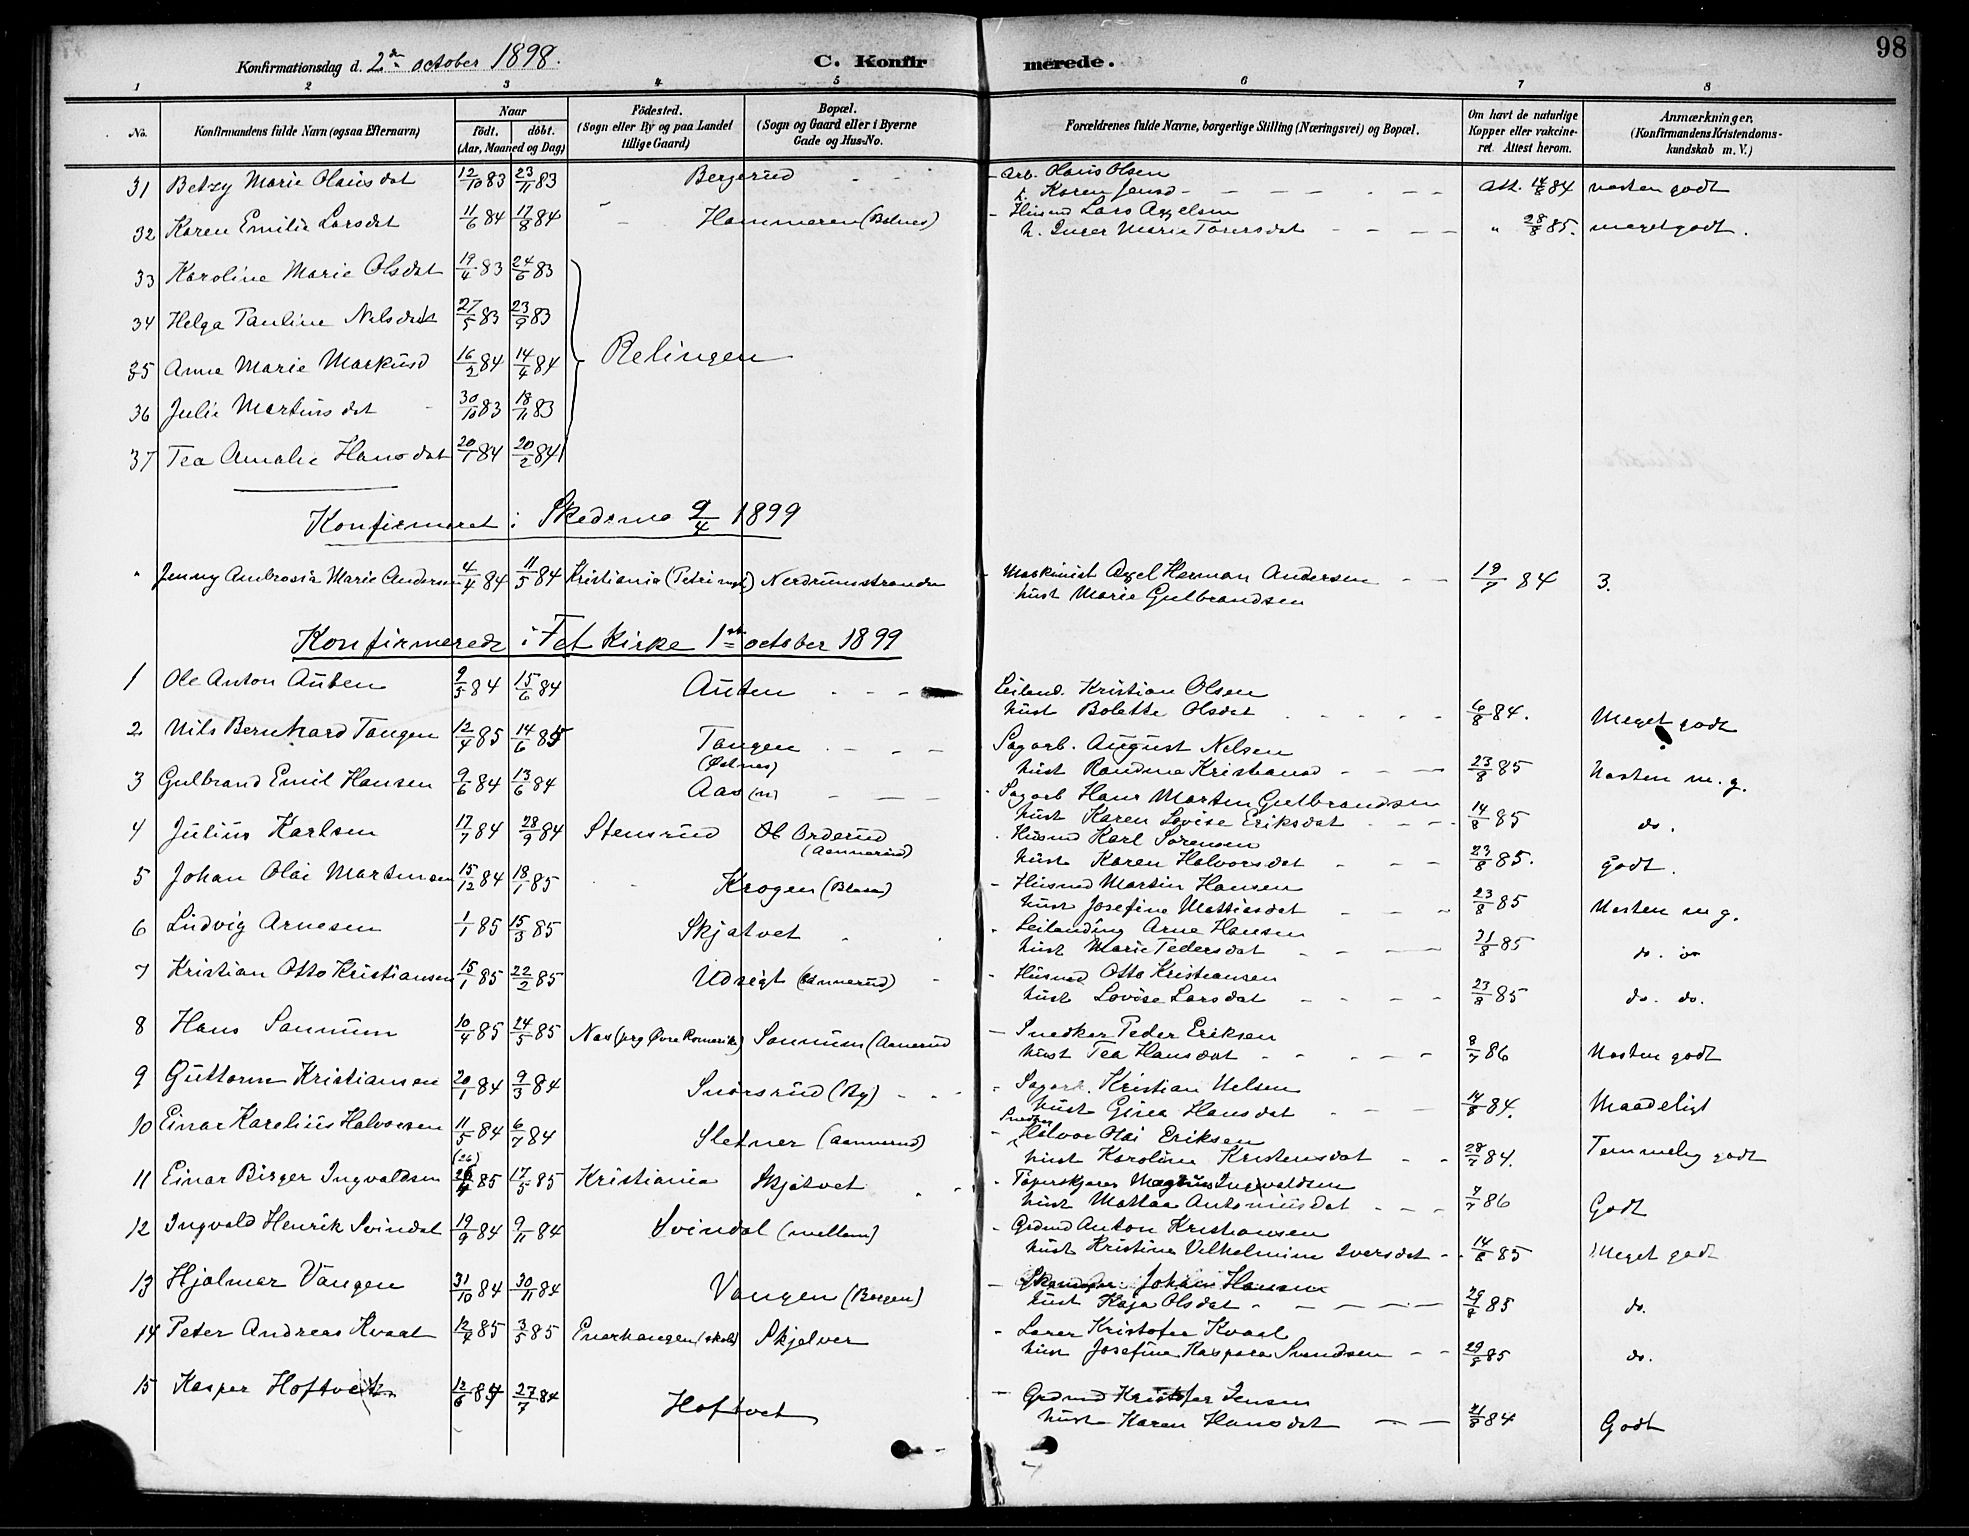 98
Konfirmationsdag d. 2den october 1898. C. Konfirmerede.
1 2 3 4 5 6 7 8
No. Konfirmandens fulde Navn (ogsaa Efternavn) Naar født. døbt. (Aar, Maaned og Dag) Fødested. (Sogn eller By og paa Landet tillige Gaard) Bopæl. (Sogn og Gaard eller i Byerne Gade og Hus-No. Forældrenes fulde Navne, borgerlige Stilling (Næringsvei) og Bopæl. Om havt de naturlige Kopper eller vakcineret. Attest herom. Anmærkninger. (Konfirmandens Kristendomskundskab m. V.)
31 Betzy Marie Olausdat 12/10 83 23/11 83 Bergerud - Arb. Olaus Olsen
h. Karen Jensd - att. 14/8 84 næsten godt
32 Karen Emilie Larsdat 11/6 84 17/8 84 Hammeren (Bolnes) - Husmd Lars Axelsen
h. Inger Marie Torersdat " 28/8 85. meget godt.
33 Karoline Marie Olsdat 19/4 83 24/6 83
34 Helga Pauline Nilsdat 27/5 83 23/9 83
35 Anne Marie Markusd 16/2 84 14/4 84 Relingen
36 Julie Martinsdat 30/10 83 18/11 83
37 Tea Amalie Hansdat 20/1 84 20/2 84
Konfirmeret i Skedsmo 9/4 1899
" Jenny Ambrosia Marie Andersen 4/4 84 11/5 84 Kristiania (Petri mgh) Nerdrumstranden - Maskinist Axel Herman Andersen 19/7 84 3.
hust Marie Gulbrandsen
Konfirmerede i Fet Kirke 1ste october 1899
1 Ole Anton Auten 9/5 84 15/6 84 Auten Leilænd. Kristian Olsen
hust Bolette Olsdat 6/8 84. Meget godt
2 Nils Bernhard Tangen 12/4 85 14/6 85 Tangen (Østnes) Sagarb. August Nelsen
hust Randine Kristiansd 23/8 85 Næsten m. g.
3 Gulbrand Emil Hansen 9/6 84 13/6 84 Aas (n) Sagarb Hans Morten Gulbrandsen
hust Karen Lovise Eriksdat 14/8 85 do.
4 Julius Karlsen 17/7 84 28/9 84 Stensrud Ol Orderud (Aamnerud) Husmd Karl Sørensen
hust Karen Halvorsdat 23/8 85. Godt.
5 Johan Olai Martinsen 15/12 84 18/1 85 Krogen - Husmd Martin Hansen
hust Josefine Mattiasdat 23/8 85 Næsten m g.
6 Ludvig Arnesen 1/1 85 15/3 85 Skjatvet Leilænding Arne Hansen
hust Marie Pedersdat 31/8 85 do. do
7 Kristian Otto Kristiansen 15/1 85 22/2 85 Udsigt (Aamnerud) - Husmd Otto Kristiansen
hust Lovise Larsdat 23/8 85 do. do.
8 Hans Sannum 10/4 85 24/5 85 Næs (prg Øvre Romerik) Sannum (Aanerud - Snedker Peder Eriksen
hust Tea Hansdat 8/7 86 Næsten godt
9 Guttorm Kristiansen 20/1 84 9/3 84 Snorsrud (By) Sagarb. Kristian Nelsen
hust Gina Hansdat 14/8 84. Maadeligt
10 Einar Karelius Halvorsen 11/5 84 6/7 84 Sletner (Aamnerud) - Snedker Halvor Olai Eriksen
hust Karoline Kristensdat 28/7 84. Temmelig godt
11 Einar Birger Ingvaldsen (26) 26/4 85 17/5 85 Kristiania Skjatvet Tapetskjærer Magnus Ingvaldsen
hust Mattea Antoniusdat 7/7 86 Godt
12 Ingvald Henrik Svindal 19/9 84 9/11 84 Svindal (mellem) - Grdmd Anton Kristiansen
hust Kristine Vilhelmine Iversdat 14/8 85 Meget godt
13 Hjalmar Vangen 31/10 84 30/11 84 Vangen (Borgen) - Johan Hansen
hust Kaja Olsdat 29/8 85 do.
14 Peter Andreas Kvaal 12/4 85 3/5 85 Enerhaugen (skole) Skjelver - Lærer Kristofer Kvaal
hust Josefine Kaspara Svendsen 29/8 85 do.
15 Kasper Hoftvet 12/6 84 27/7 84 Hoftvet - Grdmd Kristofer Jensen
hust Karen Hansdat 21/8 84 Godt